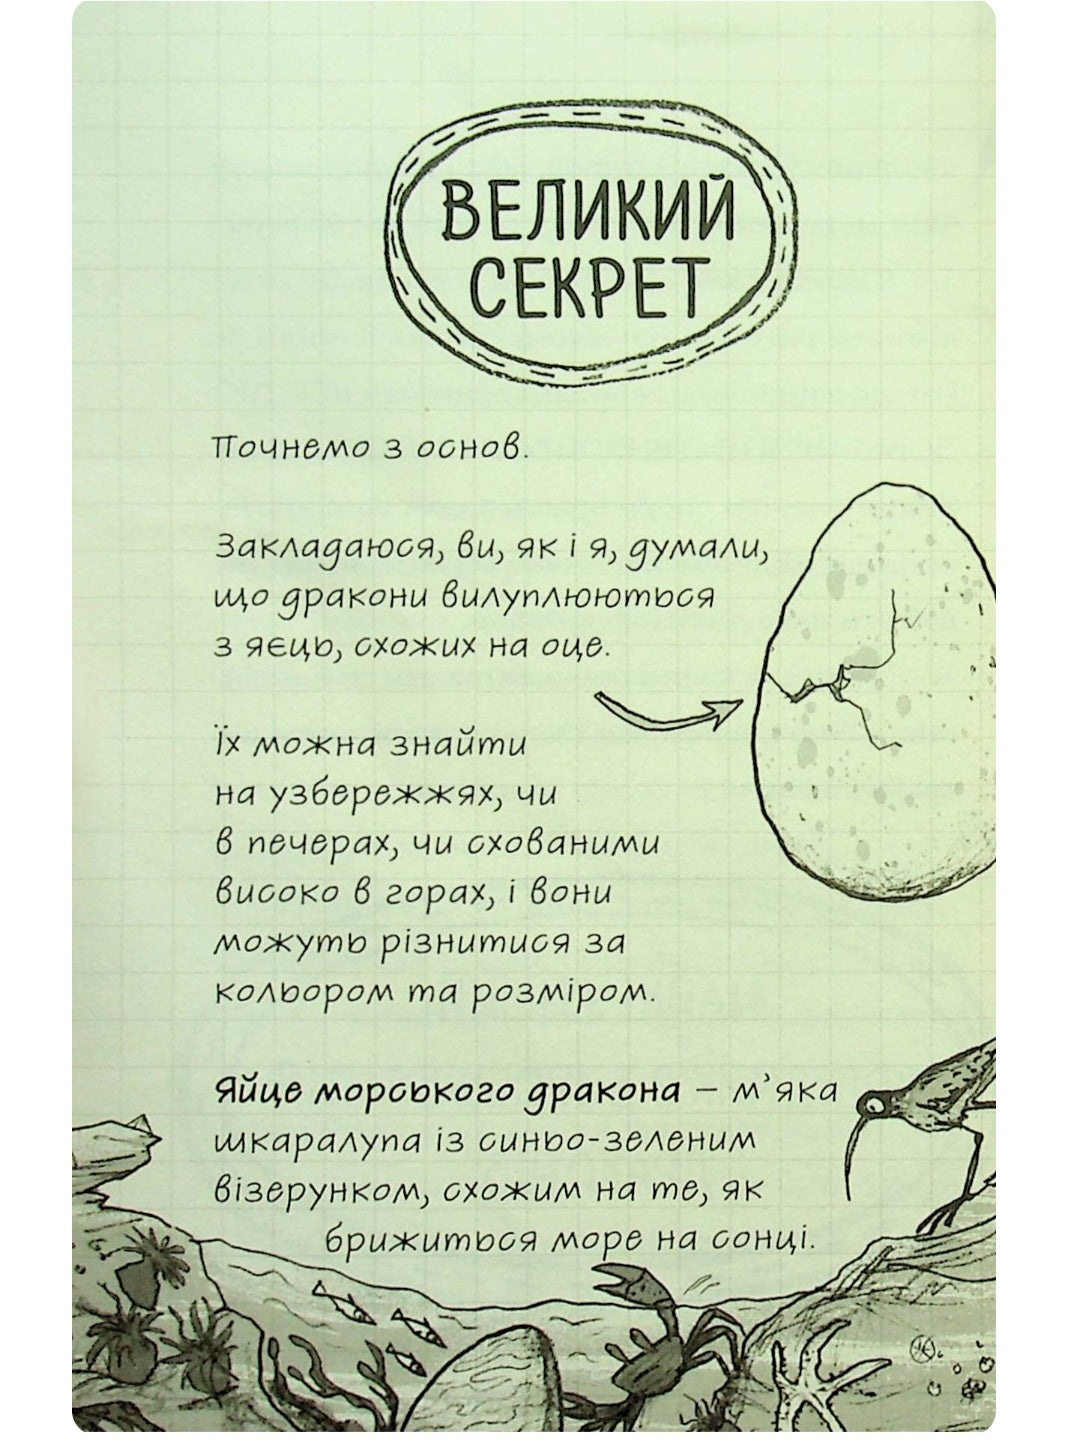 ВЕЛИКИЙ
СЕКРЕТ
Почнемо з основ.
Закладаюся, ви, як і я, думали,
що дракони вилуплюються
з яєць, схожих на оце.
Їх можна знайти
на узбережжях, чи
в печерах, чи схованими
високо в горах, і вони
можуть різнитися за
кольором та розміром.
Яйце морського дракона – м’яка
шкаралупа із синьо-зеленим
візерунком, схожим на те, як
брижиться море на сонці.